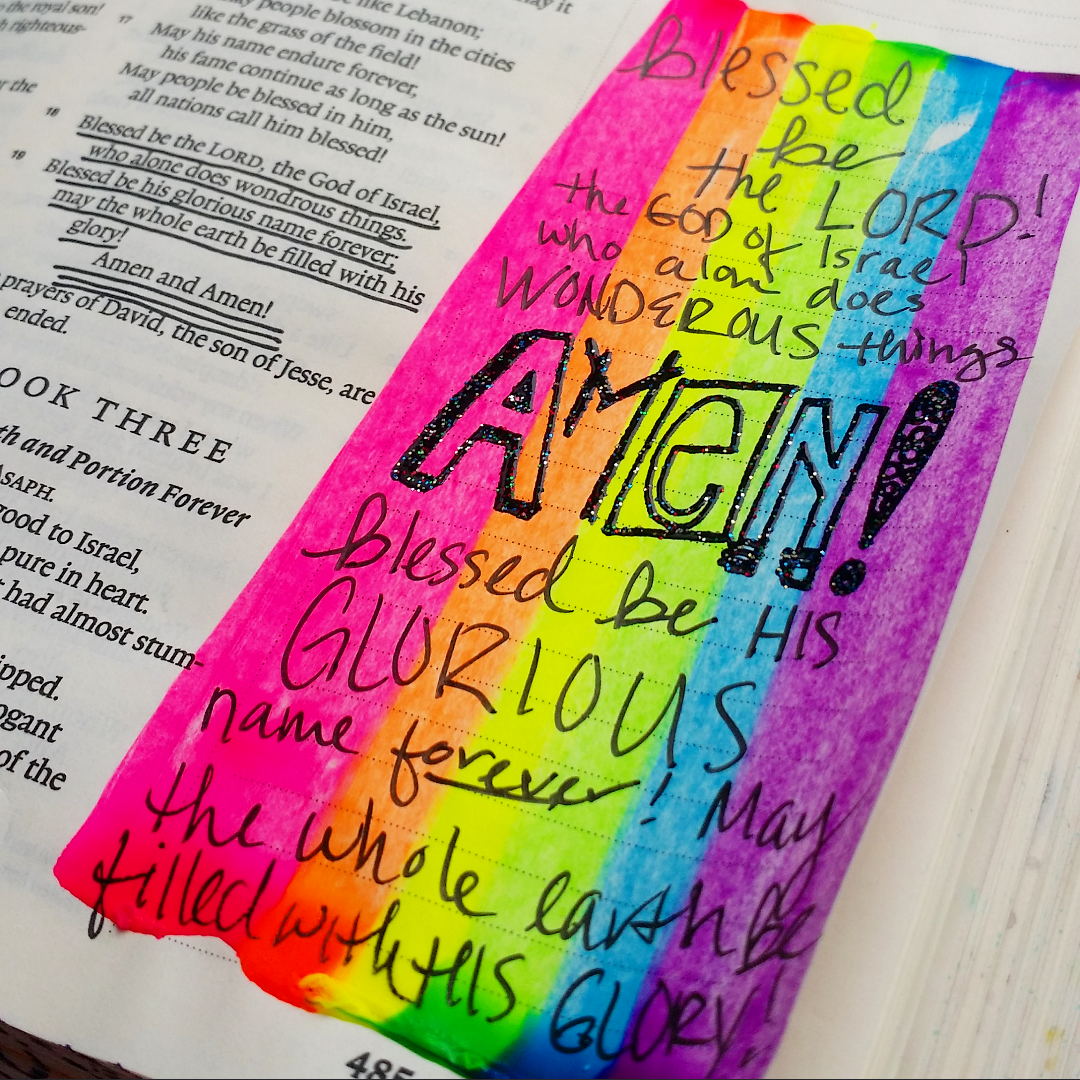 the royal son!
righteous-
or the
may it
be like Lebanon;
may people blossom in the cities
like the grass of the field!
17 May his name endure forever,
his fame continue as long as the sun!
May people be blessed in him,
all nations call him blessed!
18 Blessed be the LORD, the God of Israel,
who alone does wondrous things.
19 Blessed be his glorious name forever;
may the whole earth be filled with his
glory!
Amen and Amen!
prayers of David, the son of Jesse, are
ended.
OOK THREE
th and Portion Forever
ASAPH.
good to Israel,
pure in heart.
had almost stum-
ipped.
ogant
of the
485
blessed
be
the LORD!
the GOD of Israel
who alone does
WONDEROUS things
AMeN!
Blessed be HIS
GLORIOUS
name forever! May
the whole earth Be
filled with HIS GLORY!